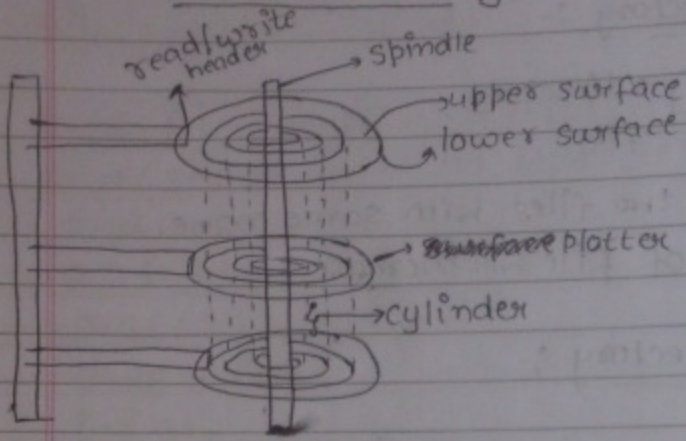 read/write
header
spindle
upper surface
lower surface
plotter
cylinder